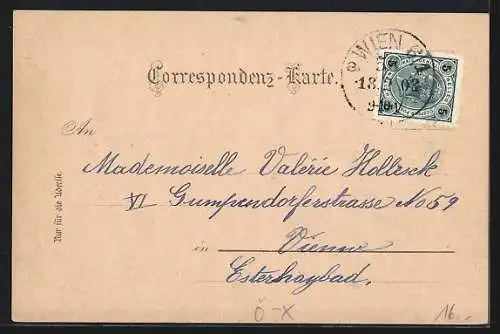 WIEN
18. 03
9-10V
5 5
5 5
Correspondenz-Karte.
An
Mademoiselle Valérie Holleschek
VI Gumpendorferstrasse No 59
in Vienne
Esterhazybad.
Nur für die Adresse.
O-X
16.-